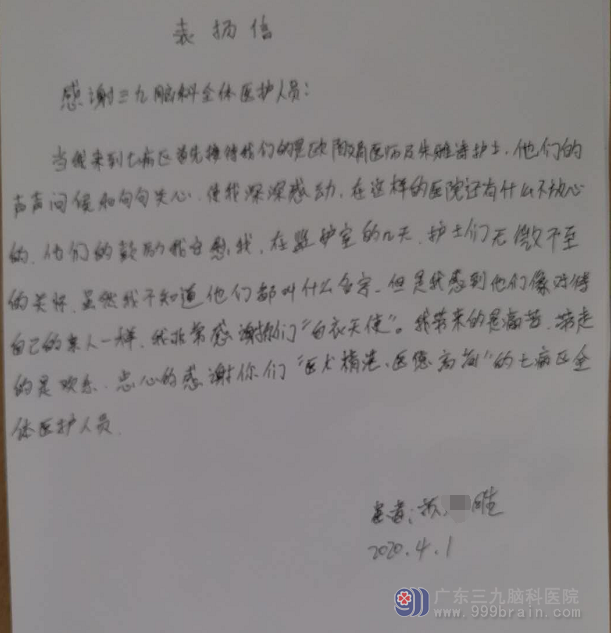 表扬信
感谢三九脑科全体医护人员:
当我来到七病区首先接待我们的是欧阳医师及朱雅诗护士,他们的
声声问候和句句关心,使我深深感动,在这样的医院还有什么不放心
的,他们的鼓励我安慰我,在监护室的几天,护士们无微不至
的关怀,虽然我不知道他们都叫什么名字,但是我感到他们像对待
自己的亲人一样,我非常感谢你们“白衣天使”。我带来的是痛苦,带走
的是欢乐,忠心的感谢你们“医术精湛、医德高尚”的七病区全
体医护人员.
患者:
2020.4.1
广东三九脑科医院
www.999brain.com